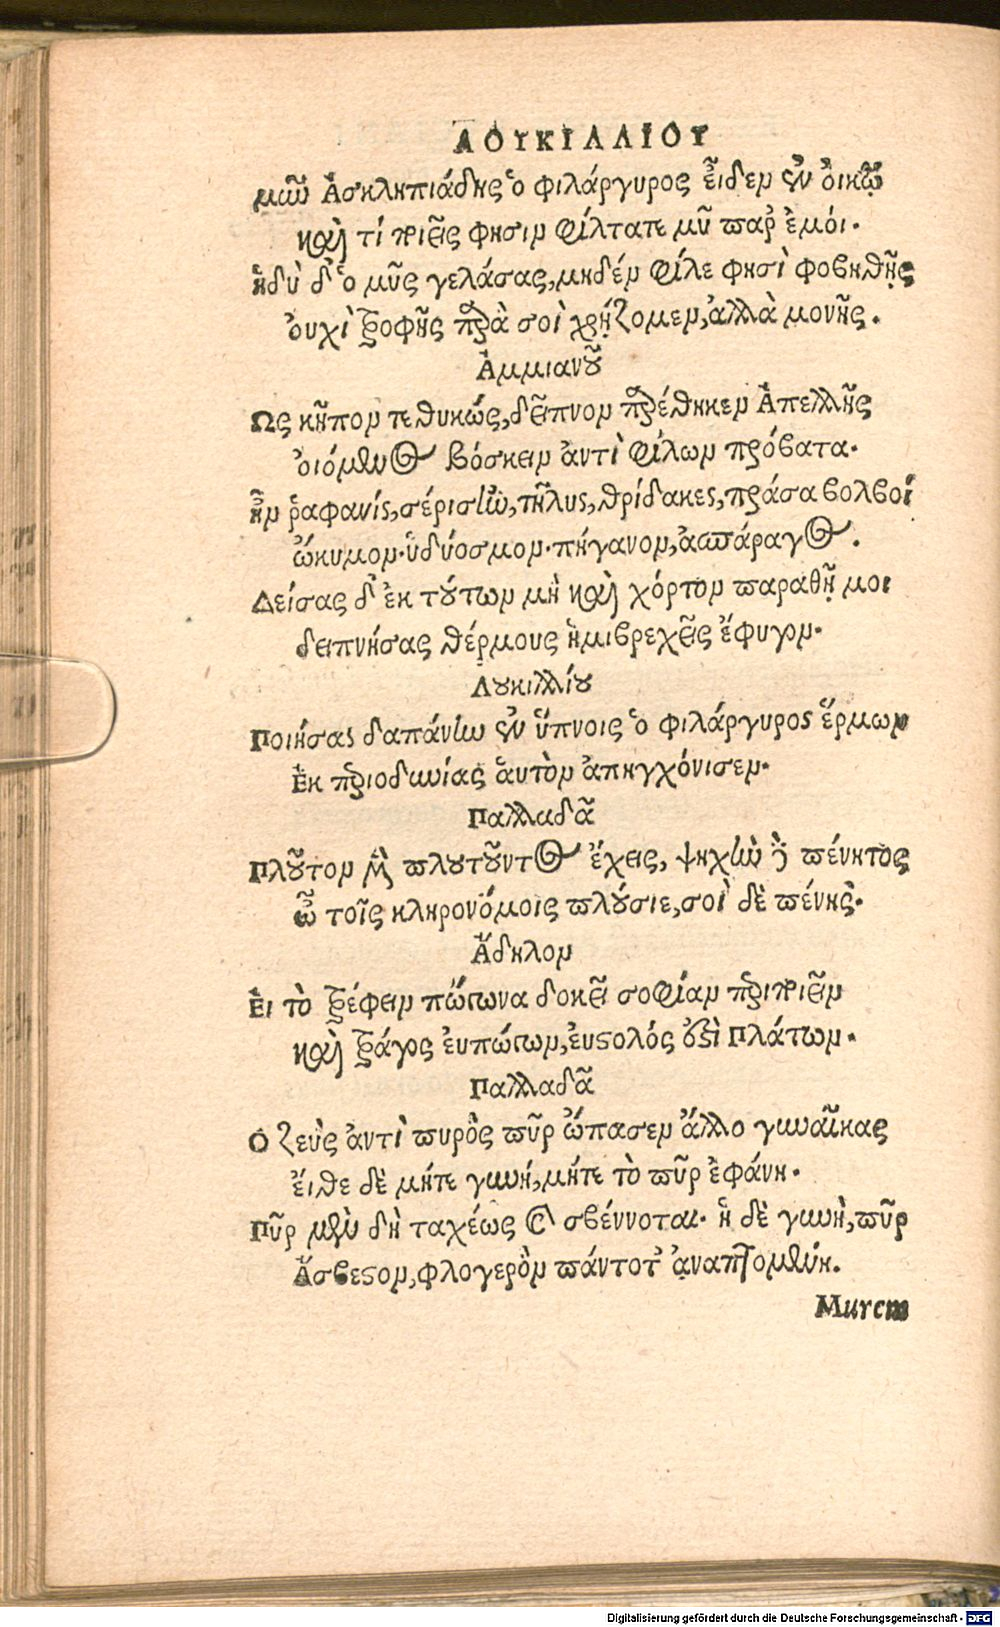 ΛΟΥΚΙΛΛΙΟΥ
μῶν Ἀσκληπιάδης ὁ φιλάργυρος εἶδεν ἐν οἴκῳ
καὶ τί ποιεῖς φησιν φίλτατε μῦ παρ' ἐμόι.
ἡδὺ δ' ὁ μῦς γελάσας, μηδέν φίλε φησὶ φοβηθῇς
ὀυχὶ τροφῆς παρὰ σοὶ χρῄζομεν, ἀλλὰ μονῆς.
Ἀμμιανοῦ
Ως κῆπον τεθυκώς, δεῖπνον παρέθηκεν Ἀπελλῆς
ὀιόμενος βόσκειν ἀντὶ φίλων πρόβατα.
ἦν ῥαφανίς, σέρις ἦν, τῆλυς, θρίδακες, πράσα βολβοί
ὤκυμον. ὑδύοσμον. πήγανον, ἀσπάραγος.
Δείσας δ' ἐκ τούτων μὴ καὶ χόρτον παραθῇ μοι
δειπνήσας θέρμους ἡμιβρεχεῖς ἔφυγον.
Λουκιλλίου
Ποιήσας δαπάνην ἐν ὕπνοις ὁ φιλάργυρος ἕρμων
Ἐκ περιοδυνίας ἁυτὸν ἀπηγχόνισεν.
Παλλαδᾶ
Πλοῦτον μὲν πλουτοῦντος ἔχεις, ψηχὴν δὲ πένητος
ὦ τοῖς κληρονόμοις πλούσιε, σοὶ δὲ πένης.
Ἄδηλον
Ἐι τὸ τρέφειν πώγωνα δοκεῖ σοφίαν περιποιεῖν
καὶ τράγος ἐυπώγων, ἐυστολός ἐστὶ Πλάτων.
Παλλαδᾶ
Ο Ζεὺς ἀντὶ πυρὸς πῦρ ὤπασεν ἄλλο γυναῖκας
ἔιθε δὲ μήτε γυνή, μήτε τὸ πῦρ ἐφάνη.
Πῦρ μὲν δὴ ταχέως καὶ σβέννυται. ἡ δὲ γυνὴ, πῦρ
Ἄσβεστον, φλογερὸν πάντοτ' ἀναπτομένη.
Murem
Digitalisierung gefördert durch die Deutsche Forschungsgemeinschaft - DFG